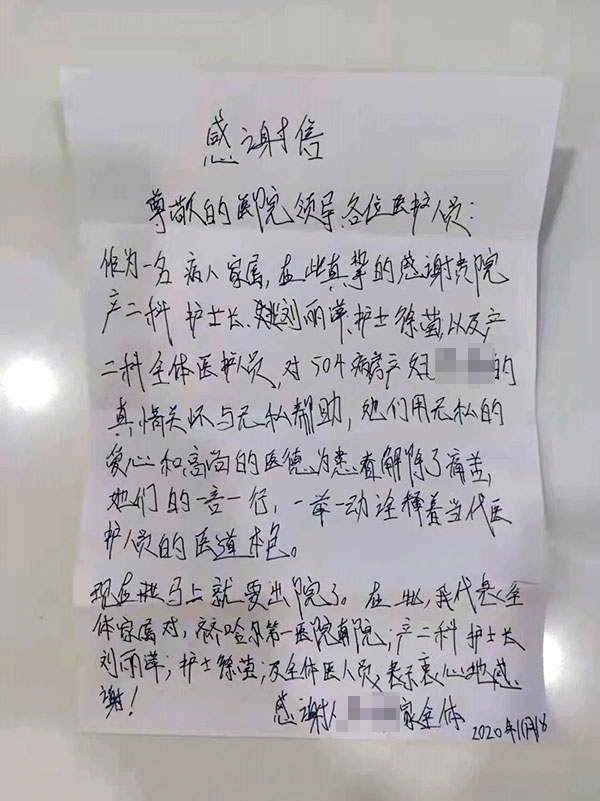 感谢信
尊敬的医院领导、各位医护人员：
作为一名病人家属，在此真挚的感谢贵院
产二科护士长、刘丽萍、护士徐萤，以及产
二科全体医护人员，对504病房产妇的
真情关怀与无私帮助，她们用无私的
爱心和高尚的医德为患者解除了痛苦，
她们的一言一行，一举一动诠释着当代医
护人员的医道本色。
现在她马上就要出院了。在此，我代表全
体家属对，齐哈尔第一医院南院；产二科护士长
刘丽萍；护士徐萤；及全体医人员，表示衷心地感
谢！
感谢人家全体
2020年11月18